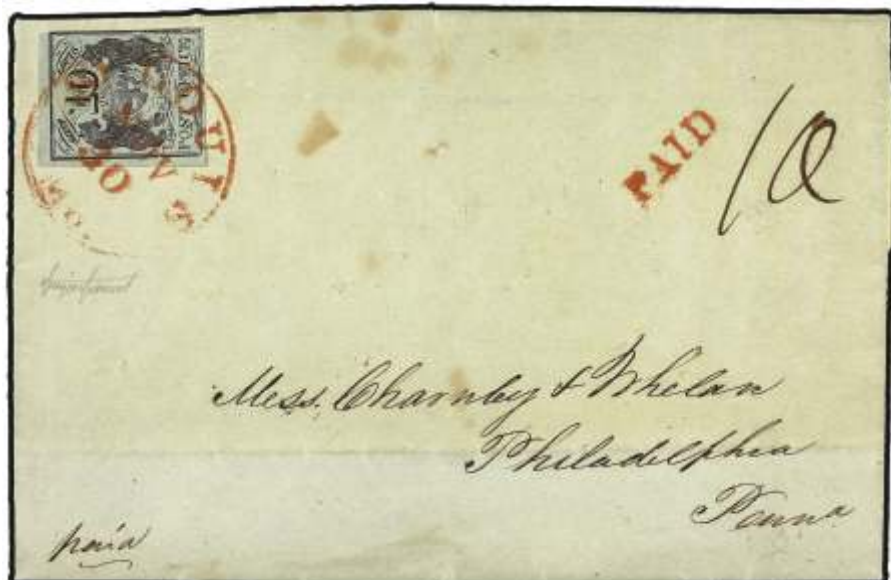 10
PAID
10
Mess. Charnley & Whelan
Philadelphia
Penna
paid